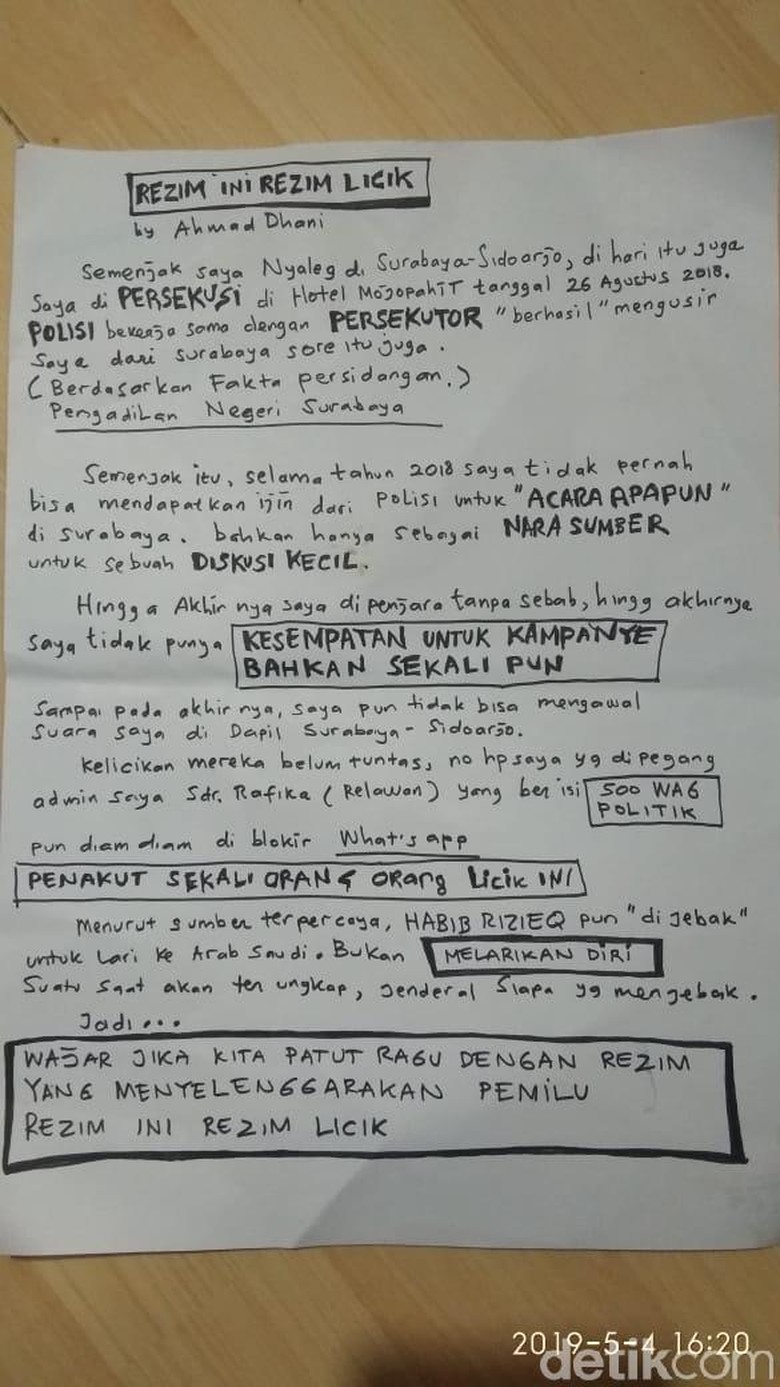 REZIM INI REZIM LICIK
by Ahmad Dhani
Semenjak saya Nyaleg di Surabaya-Sidoarjo, di hari itu juga
Saya di PERSEKUSI di Hotel Mojopahit tanggal 26 Agustus 2018.
POLISI bekerja sama dengan PERSEKUTOR "berhasil" mengusir
Saya dari surabaya sore itu juga.
(Berdasarkan Fakta persidangan.)
Pengadilan Negeri Surabaya
Semenjak itu, selama tahun 2018 saya tidak pernah
bisa mendapatkan ijin dari Polisi untuk "ACARA APAPUN"
di surabaya. bahkan hanya sebagai NARA SUMBER
untuk sebuah DISKUSI KECIL.
Hingga Akhirnya saya di penjara tanpa sebab, hingg akhirnya
saya tidak punya KESEMPATAN UNTUK KAMPANYE
BAHKAN SEKALI PUN
Sampai pada akhirnya, saya pun tidak bisa mengawal
suara saya di Dapil Surabaya-Sidoarjo.
Kelicikan mereka belum tuntas, no hp saya yg di pegang
admin saya Sdr. Rafika (Relawan) yang berisi 500 WAG
POLITIK
pun diam diam di blokir What's app
PENAKUT SEKALI ORANG ORang Licik INI
Menurut sumber terpercaya, HABIB RIZIEQ pun "di jebak"
untuk Lari ke Arab Saudi. Bukan MELARIKAN DIRI
Suatu saat akan terungkap, jenderal Siapa yg menjebak.
Jadi...
WAJAR JIKA KITA PATUT RAGU DENGAN REZIM
YANG MENYELENGGARAKAN PEMILU
REZIM INI REZIM LICIK
2019-5-4 16:20
detikcom